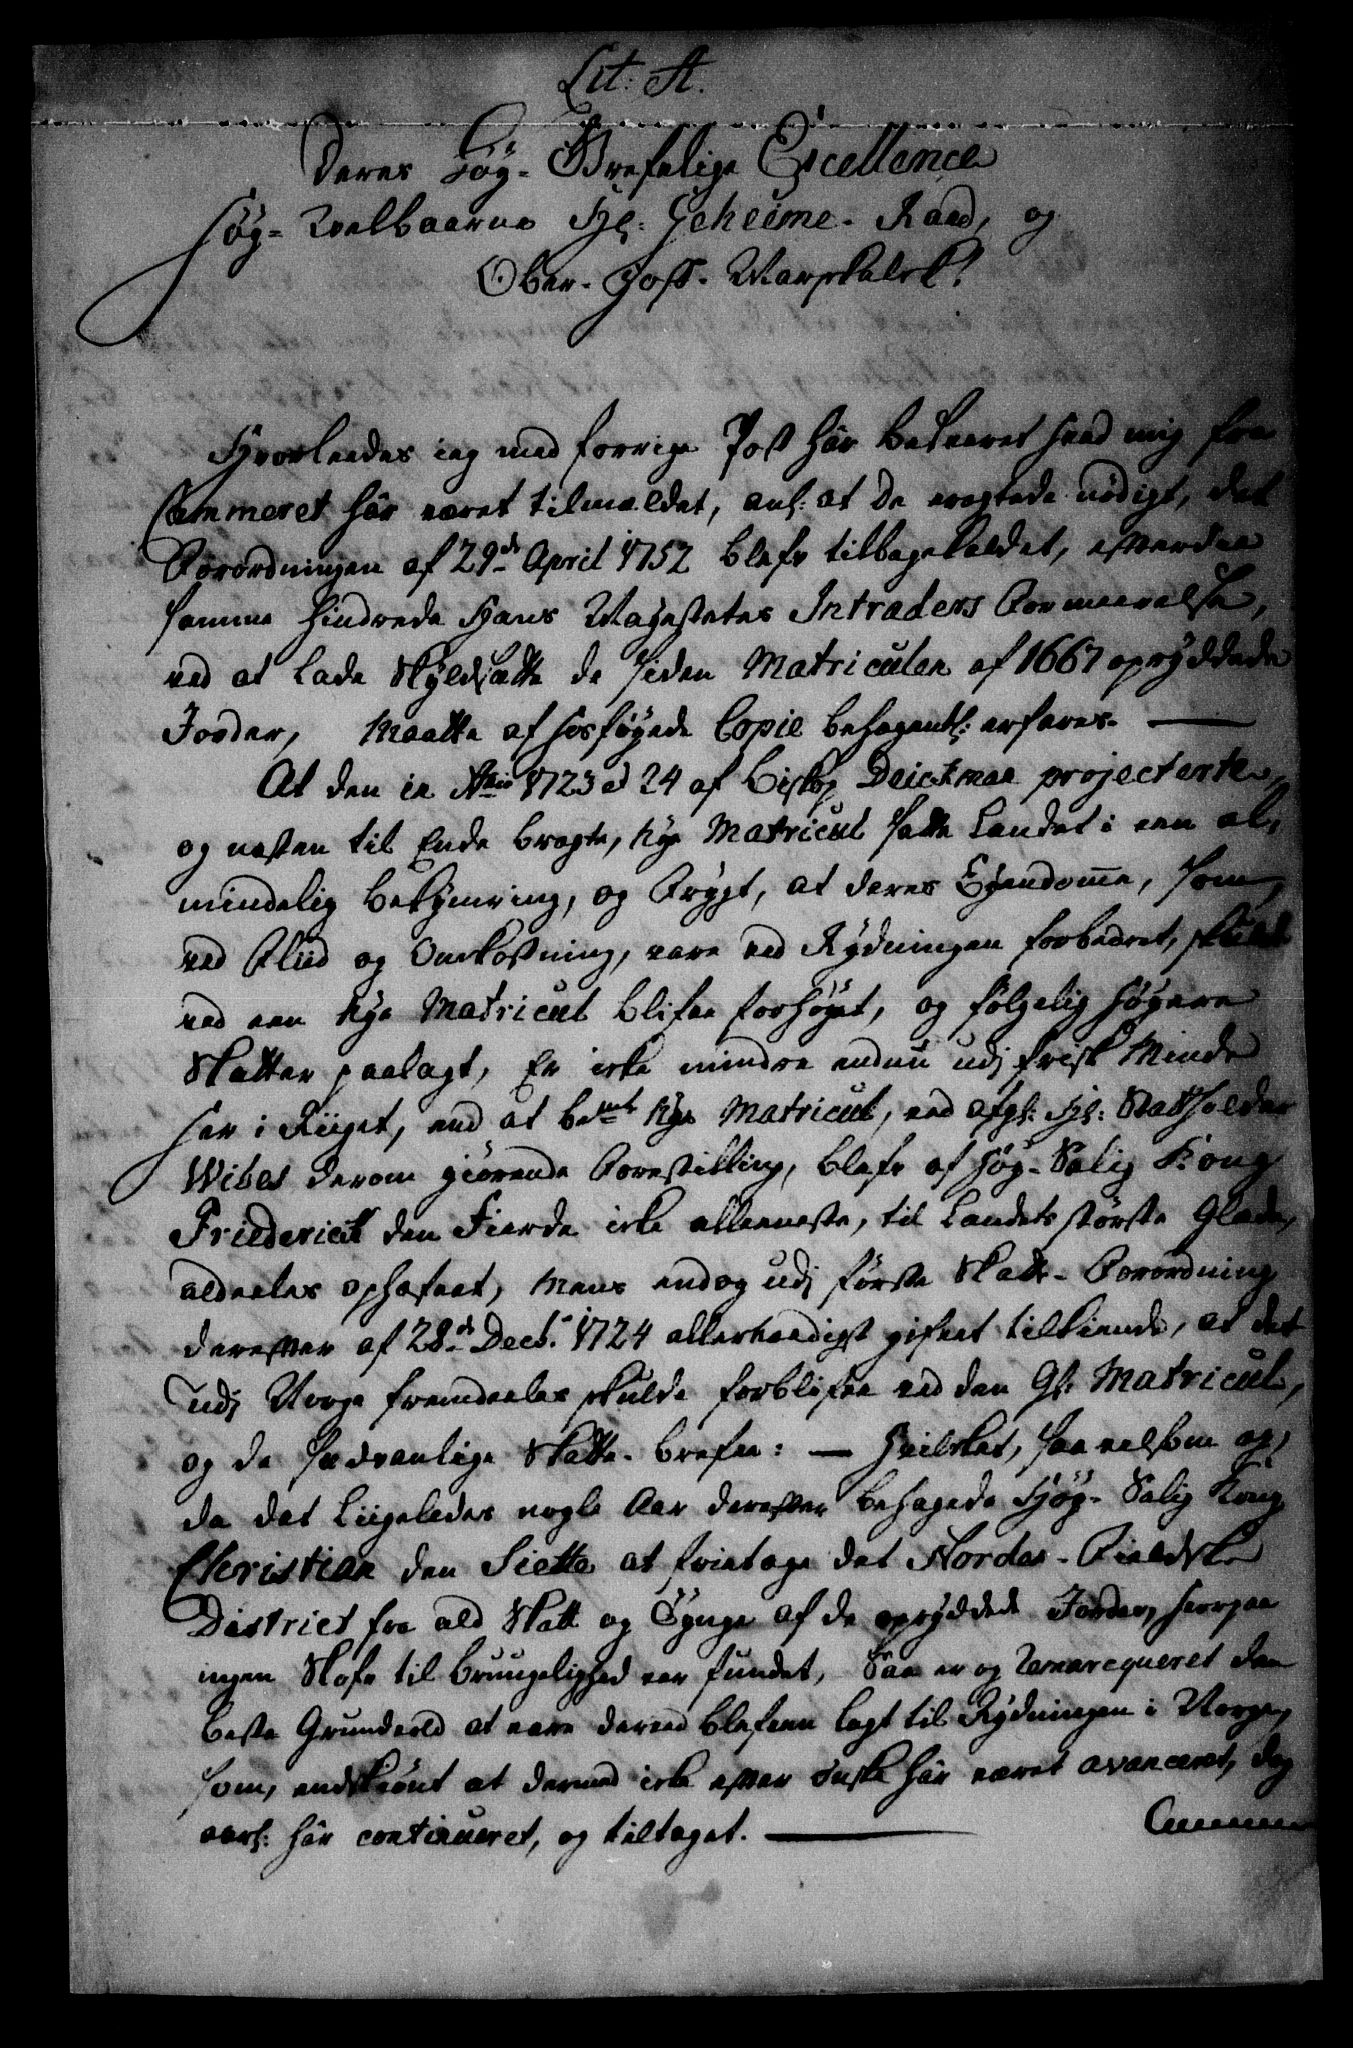 Lit: A.
Deres Høy-Grefelige Excellence
Høy-Velbaarne Hr: Geheime-Raad, og
Ober-Hoff-Marskalck!
Hvorleedes ieg med forrige Post har besvaret hvad mig fra
Cammeret har været tilmældet, anl: at De eragtede nödigt, det
Forordningen af 29de April 1752 blefv tilbagekaldet, efterdee
samme hindrede Hans Mayestetes Intraders Formeerelse,
ved at lade Skyldsætte de siden Matriculen af 1667 opryddede
Jorder, Maatte af hosföyede Copie behageligst: erfares. —
At den in Anno 1723 et 24 af Biskop Deickman projecterte,
og næsten til Ende bragte, Nye Matricul satte Landet i een al,
mindelig bekymring, og Frygt, at deres Eyendomme, som,
ved Fliid og Omkostning, vare ved Rydningen forbedret, skulde
ved een Nye Matricul blifve forhöyet, og fölgelig höyere
Skatter paalagt, Er icke mindre endnu udj frisk Minde
her i Riiget, end at bemte Nye Matricul, ved afgl: Hr: Statholder
Wibes derom giörende Forestilling, blefv af Høy-Salig Kong
Friederich den Fierde icke alleeneste, til Landets störste Glæde,
aldeeles ophæfvet, Mens endog udj förste Skatte-Forordning
derefter af 28de Decbr 1724 allernaadigst gifvet tilkiende, at det
udj Norge fremdeeles skulde forblifve ved den Gl: Matricul,
og de sædvanlige Skatte-brefve: — Hvilket, saavelsom og,
da det Liigeledes nogle Aar derefter behagede Høy-Salig Kong
Christian den Siette at fritage det Norden-Fieldske
District fra ald Skatt og Tynge af de opryddede Jorder, hvorpaa
ingen Skofv til bruugelighed var fundet, Saa er og remarequeret den
beste Grundvold at være derved blefven lagt til Rydningen i Norge,
som, endskiönt at dermed icke efter önske har været avanceret, dog
aarl: har continueret, og tiltaget. —